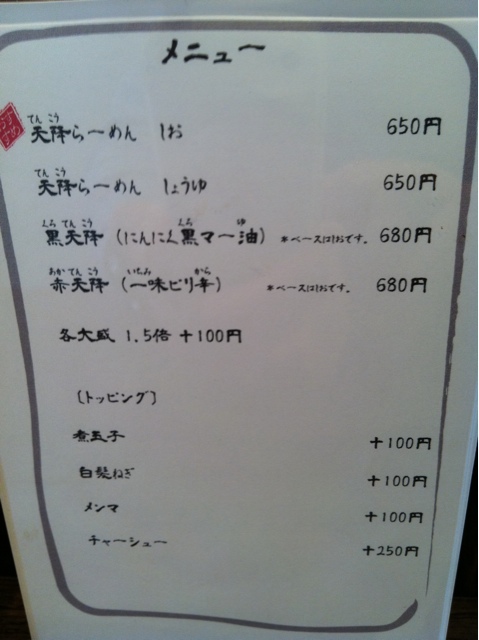 メニュー
てん こう
天降らーめん しお 650円
てん こう
天降らーめん しょうゆ 650円
くろ てん こう くろ ゆ
黒天降(にんにく黒マー油) *ベースはしおです。 680円
あか てん こう いちみ から
赤天降(一味ピリ辛) *ベースはしおです。 680円
各大盛 1.5倍 +100円
〔トッピング〕
煮玉子 +100円
白髪ねぎ +100円
メンマ +100円
チャーシュー +250円